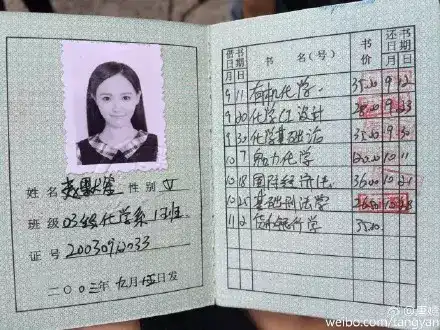 姓名 赵默笙 性别 女
班级 03级化学系1班
证号
二〇〇三年九月十五日发
借书日期 书 名(号) 书价 还书日期
月 日 月 日
9 11 有机化学 35.00 9 12
9 20 化学 设计 9 23
9 30 化学基础 35.00 9 30
10 7 动力化学 10 11
10 18 国际经济法 36.00 10 21
10 25 基础刑法学
11 2 货币银行学 35.00
@唐嫣
weibo.com/tangyan